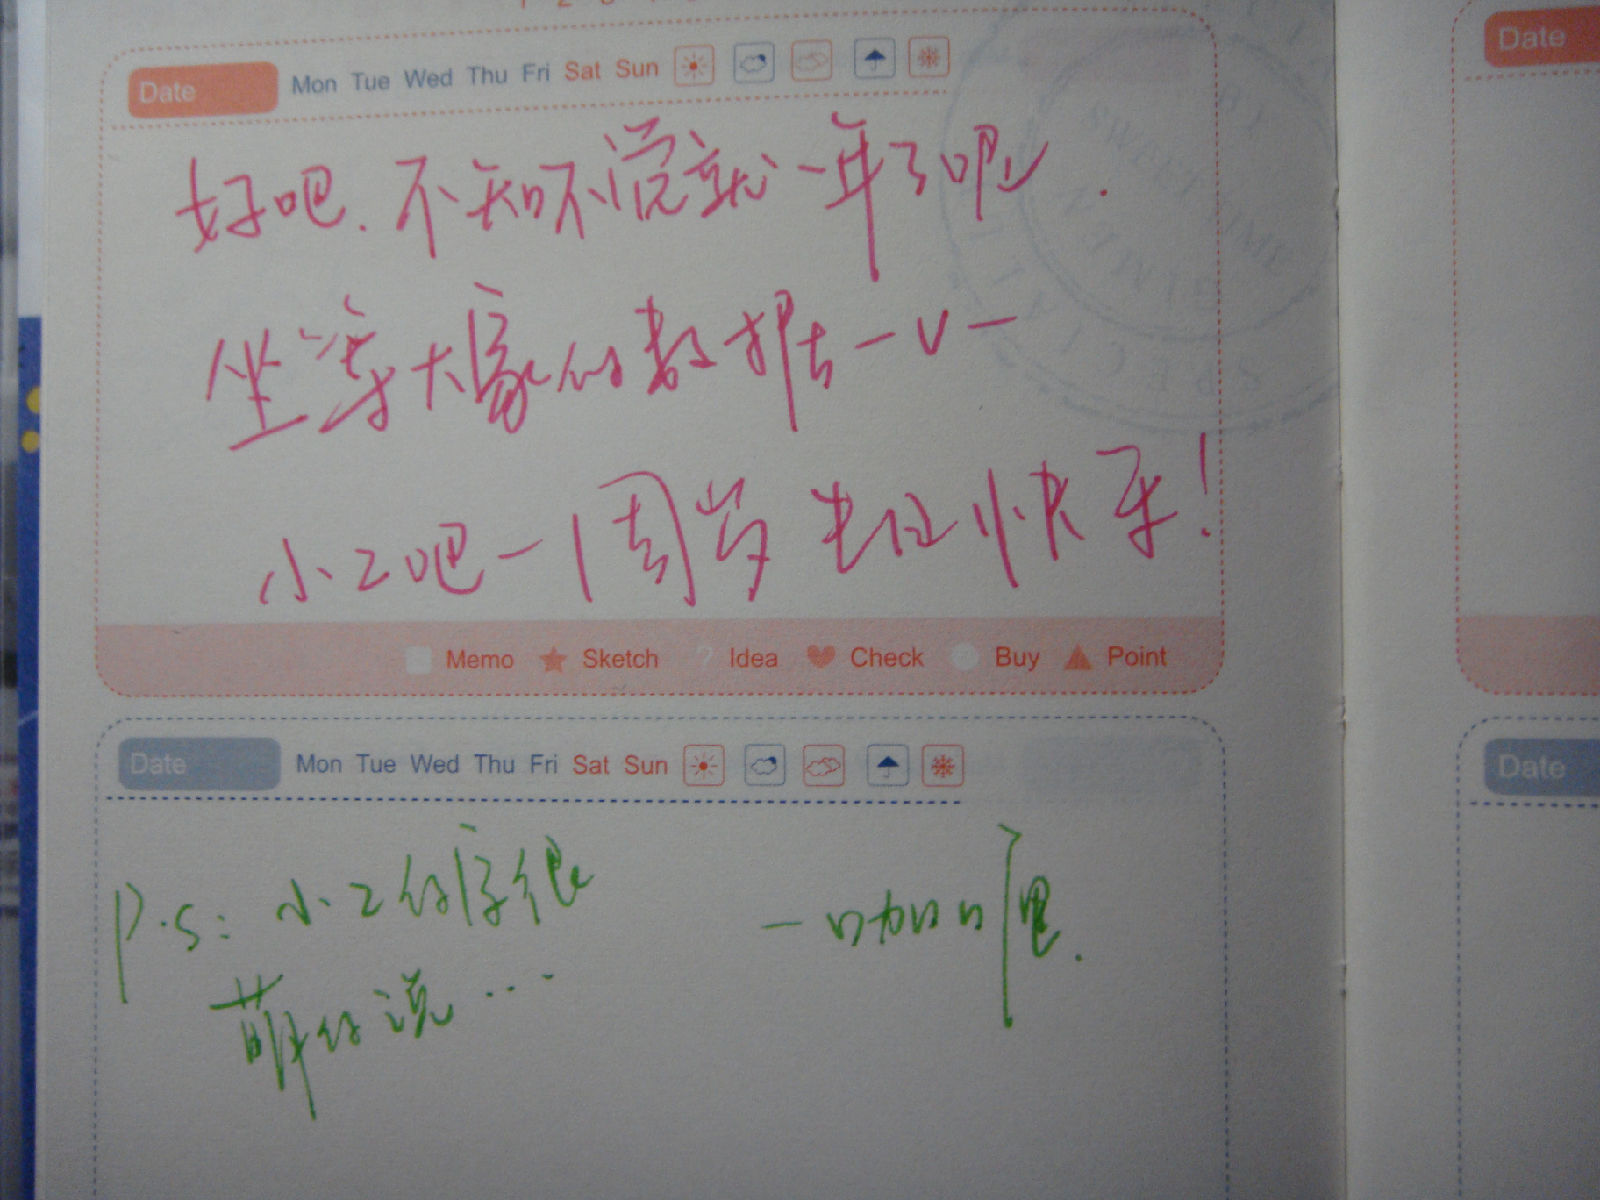 Date Mon Tue Wed Thu Fri Sat Sun
好吧.不知不觉就一年了呢.
坐等大家的数据-v-
小乙吧一周岁生日快乐!
Memo Sketch ? Idea Check Buy Point
Date Mon Tue Wed Thu Fri Sat Sun
P.S: 小乙的字很
萌的说...
Date
Date
SPECIAL